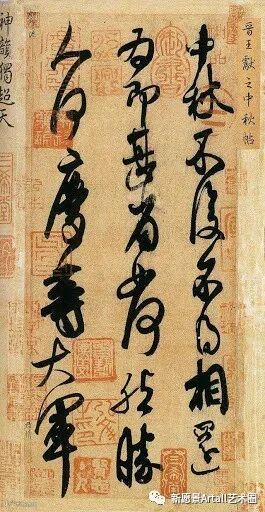 晉王獻之中秋帖
中秋不復不得相還
為即甚省如何然勝
人何慶等大軍
神韻獨超天
新愿景Artall艺术圈